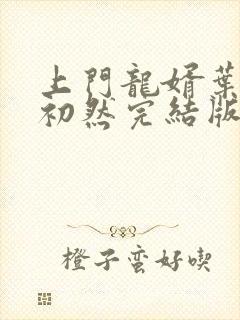 上門龍婿葉
初然完結版
橙子蛮好喫